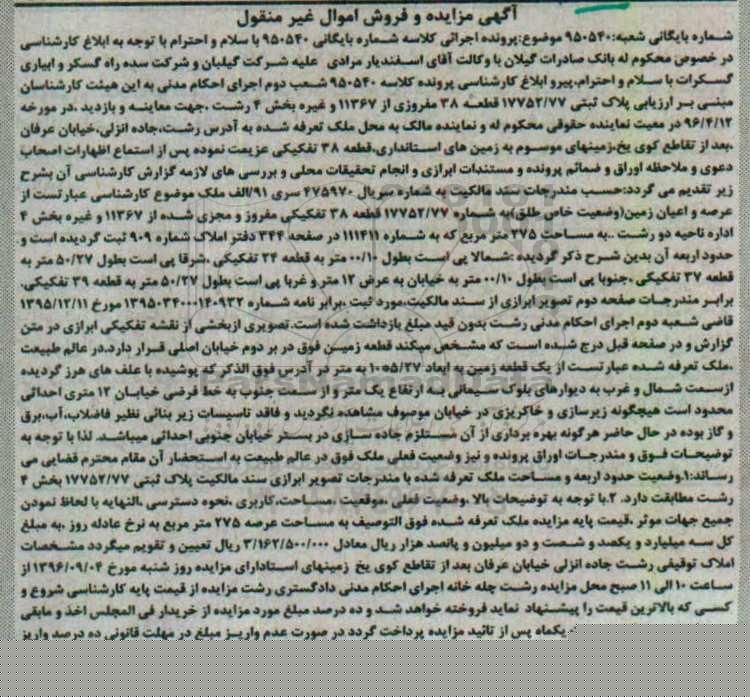 آگهی مزایده و فروش اموال غیر منقول
شماره بایگانی شعبه:۹۵۰۵۴۰ موضوع:پرونده اجرائی کلاسه شماره بایگانی ۹۵۰۵۴۰ با سلام و احترام با توجه به ابلاغ کارشناسی
در خصوص محکوم له بانک صادرات گیلان با وکالت آقای اسفندیار مرادی علیه شرکت گیلبان و شرکت سده راه گسکر و ابیاری
گسکرات با سلام و احترام.پیرو ابلاغ کارشناسی پرونده کلاسه ۹۵۰۵۴۰ شعب دوم اجرای احکام مدنی به این هیئت کارشناسان
مبنی بر ارزیابی پلاک ثبتی ۱۷۷۵۲/۷۷ قطعه ۳۸ مفروزی از ۱۱۳۶۷ و غیره بخش ۴ رشت ،جهت معاینه و بازدید ،در مورخه
۹۶/۴/۱۲ در معیت نماینده حقوقی محکوم له و نماینده مالک به محل ملک تعرفه شده به آدرس رشت،جاده انزلی،خیابان عرفان
،بعد از تقاطع کوی یخ،زمینهای موسوم به زمین های استانداری،قطعه ۳۸ تفکیکی عزیمت نموده پس از استماع اظهارات اصحاب
دعوی و ملاحظه اوراق و ضمائم پرونده و مستندات ابرازی و انجام تحقیقات محلی و بررسی های لازمه گزارش کارشناسی آن بشرح
زیر تقدیم می گردد:حسب مندرجات سند مالکیت به شماره سریال ۴۷۵۹۷۰ سری ۹۱/الف ملک موضوع کارشناسی عبارتست از
عرصه و اعیان زمین(وضعیت خاص طلق)به شماره ۱۷۷۵۲/۷۷ قطعه ۳۸ تفکیکی مفروز و مجزی شده از ۱۱۳۶۷ و غیره بخش ۴
اداره ناحیه دو رشت ..به مساحت ۲۷۵ متر مربع که به شماره ۱۱۱۴۱۱ در صفحه ۳۴۴ دفتر املاک شماره ۹۰۹ ثبت گردیده است و
حدود اربعه آن بدین شرح ذکر گردیده :شمالا پی است بطول ۰۰/۱۰ متر به قطعه ۲۴ تفکیکی ،شرقا پی است بطول ۵۰/۲۷ متر به
قطعه ۳۷ تفکیکی ،جنوبا پی است بطول ۰۰/۱۰ متر به خیابان به عرض ۱۲ متر و غربا پی است بطول ۵۰/۲۷ متر به قطعه ۳۹ تفکیکی.
برابر مندرجات صفحه دوم تصویر ابرازی از سند مالکیت،مورد ثبت ،برابر نامه شماره ۱۳۹۵۰۳۴۰۰۰۱۴۰۹۳۲ مورخ ۱۳۹۵/۱۲/۱۱
قاضی شعبه دوم اجرای احکام مدنی رشت بدون قید مبلغ بازداشت شده است.تصویری ازبخشی از نقشه تفکیکی ابرازی در متن
گزارش و در صفحه قبل درج شده است که مشخص میکند قطعه زمین فوق در بر دوم خیابان اصلی قرار دارد.در عالم طبیعت
،ملک تعرفه شده عبارتست از یک قطعه زمین به ابعاد ۵/۲۷*۱۰ به متر در آدرس فوق الذکر که پوشیده با علف های هرز گردیده
ازسمت شمال و غرب به دیوارهای بلوک سیمانی به ارتفاع یک متر و از سمت جنوب به خط فرضی خیابان ۱۲ متری احداثی
محدود است هیچگونه زیرسازی و خاکریزی در خیابان موصوف مشاهده نگردید و فاقد تاسیسات زیر بنائی نظیر فاضلاب،آب،برق
و گاز بوده در حال حاضر هرگونه بهره برداری از آن مستلزم جاده سازی در بستر خیابان جنوبی احداثی میباشد. لذا با توجه به
توضیحات فوق و مندرجات اوراق پرونده و نیز وضعیت فعلی ملک فوق در عالم طبیعت به استحضار آن مقام محترم قضایی می
رساند:۱.وضعیت حدود اربعه و مساحت ملک تعرفه شده با مندرجات تصویر ابرازی سند مالکیت پلاک ثبتی ۱۷۷۵۲/۷۷ بخش ۴
رشت مطابقت دارد. ۲.با توجه به توضیحات بالا ،وضعیت فعلی ،موقعیت ،مساحت،کاربری ،نحوه دسترسی ،النهایه با لحاظ نمودن
جمیع جهات موثر ،قیمت پایه مزایده ملک تعرفه شده فوق التوصیف به مساحت عرصه ۲۷۵ متر مربع به نرخ عادله روز ،به مبلغ
کل سه میلیارد و یکصد و شصت و دو میلیون و پانصد هزار ریال معادل ۳/۱۶۲/۵۰۰/۰۰۰ ریال تعیین و تقویم میگردد مشخصات
املاک توقیفی رشت جاده انزلی خیابان عرفان بعد از تقاطع کوی یخ زمینهای استادارای مزایده روز شنبه مورخ ۱۳۹۶/۰۹/۰۴ از
ساعت ۱۰ الی ۱۱ صبح محل مزایده رشت چله خانه اجرای احکام مدنی دادگستری رشت مزایده از قیمت پایه کارشناسی شروع و
کسی که بالاترین قیمت را پیشنهاد نماید فروخته خواهد شد و ده درصد مبلغ مورد مزایده از خریدار فی المجلس اخذ و مابقی
یکماه پس از تائید مزایده پرداخت گردد در صورت عدم واریز مبلغ در مهلت قانونی ده درصد واریز